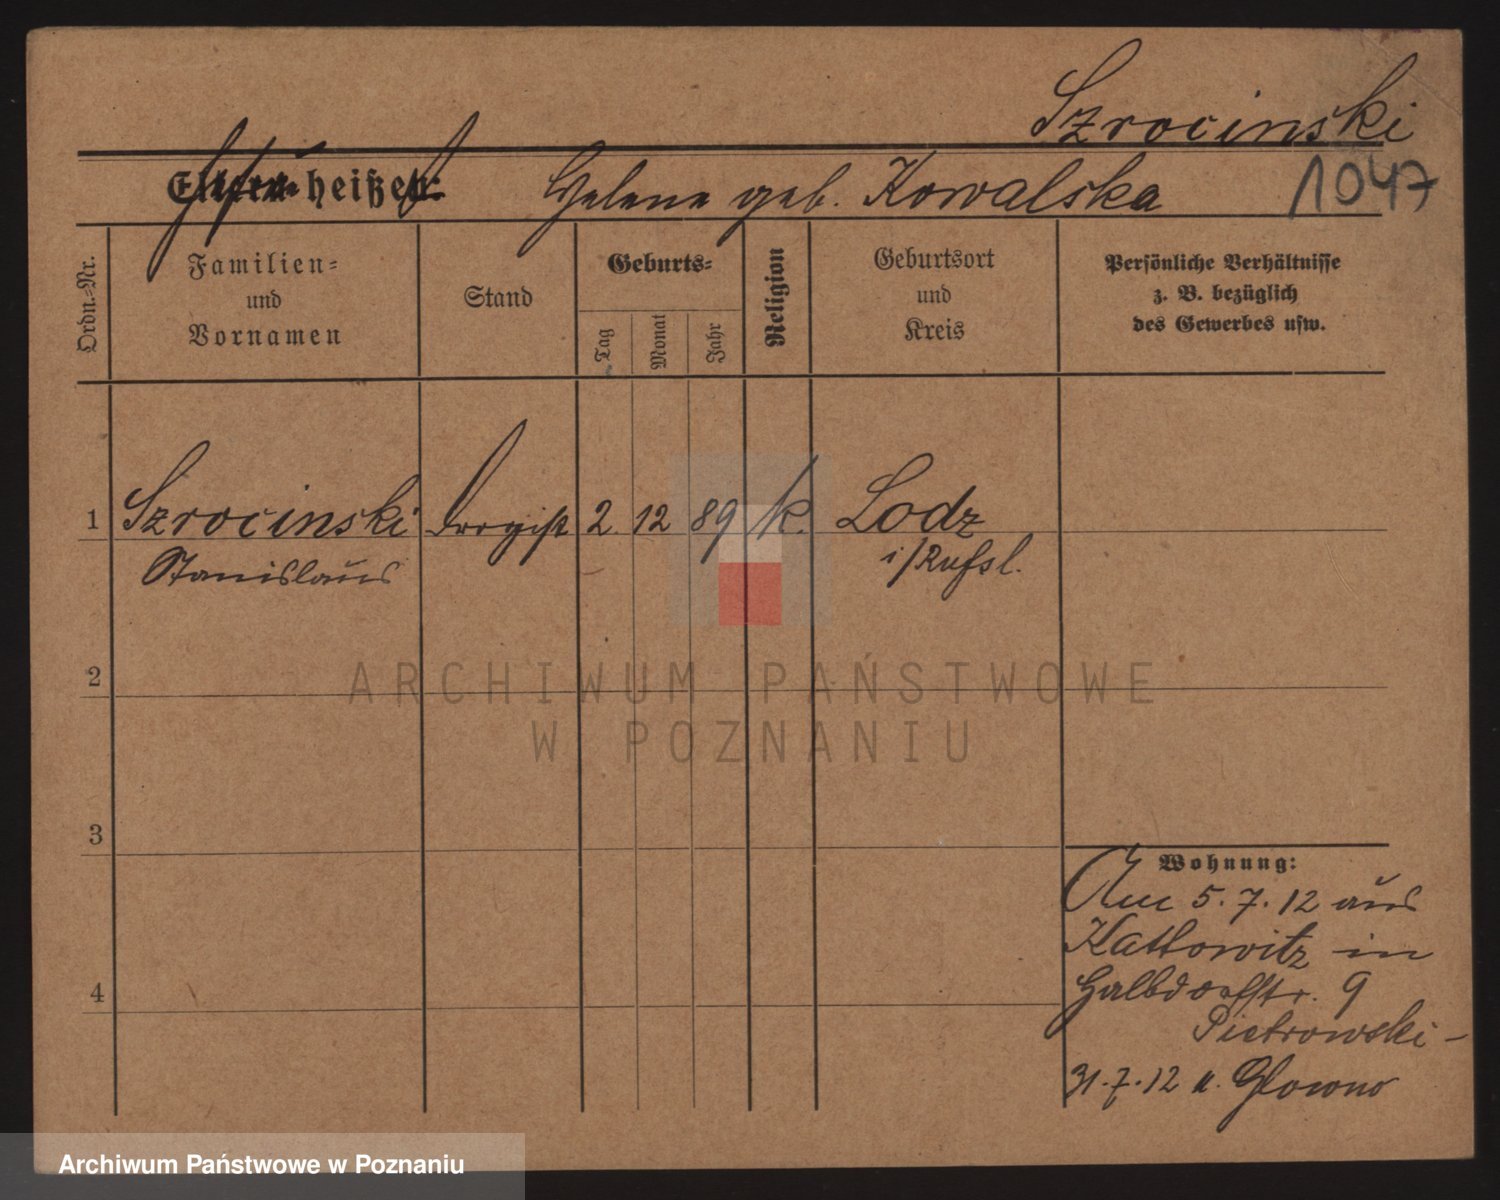 Szrocinski
Eltern heißen: Helene geb. Kowalska 1047
Ordn.=Nr.
Familien=
und
Vornamen
Stand
Geburts=
Tag
Monat
Jahr
Religion
Geburtsort
und
Kreis
Persönliche Verhältnisse
z. B. bezüglich
des Gewerbes usw.
1 Szrocinski Drogist 2. 12 89 k. Lodz
Stanislaus i/Russl.
2
ARCHIWUM PAŃSTWOWE
W POZNANIU
3
Wohnung:
Am 5.7.12 aus
Kattowitz in
4 Halbdorfstr. 9
Pietrowski -
31.7.12 n. Glowno
Archiwum Państwowe w Poznaniu